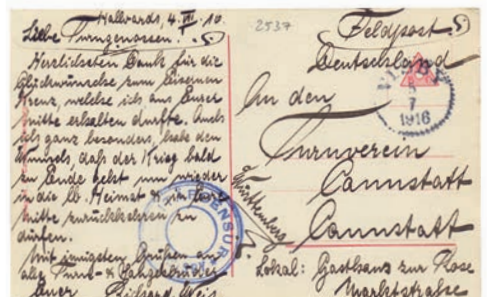 Hallvards, 4. VII. 16.
Liebe Turngenossen!
Herzlichsten Dank für die
Glückwünsche zum Eisernen
Kreuz, welche ich aus Eurer
Mitte erhalten durfte. Auch
ich ganz besonders, habe den
Wunsch, daß der Krieg bald
zu Ende geht um wieder
in die lb. Heimat & in Eure
Mitte zurückkehren zu
dürfen.
Mit innigsten Grüßen an
alle Turn- &
Euer Richard Weis
2537
Feldpost
Deutschland
An den
Turnverein
Cannstatt
Württemberg
Cannstatt
Lokal: Gasthaus zur Rose
Marktstraße
7
1916